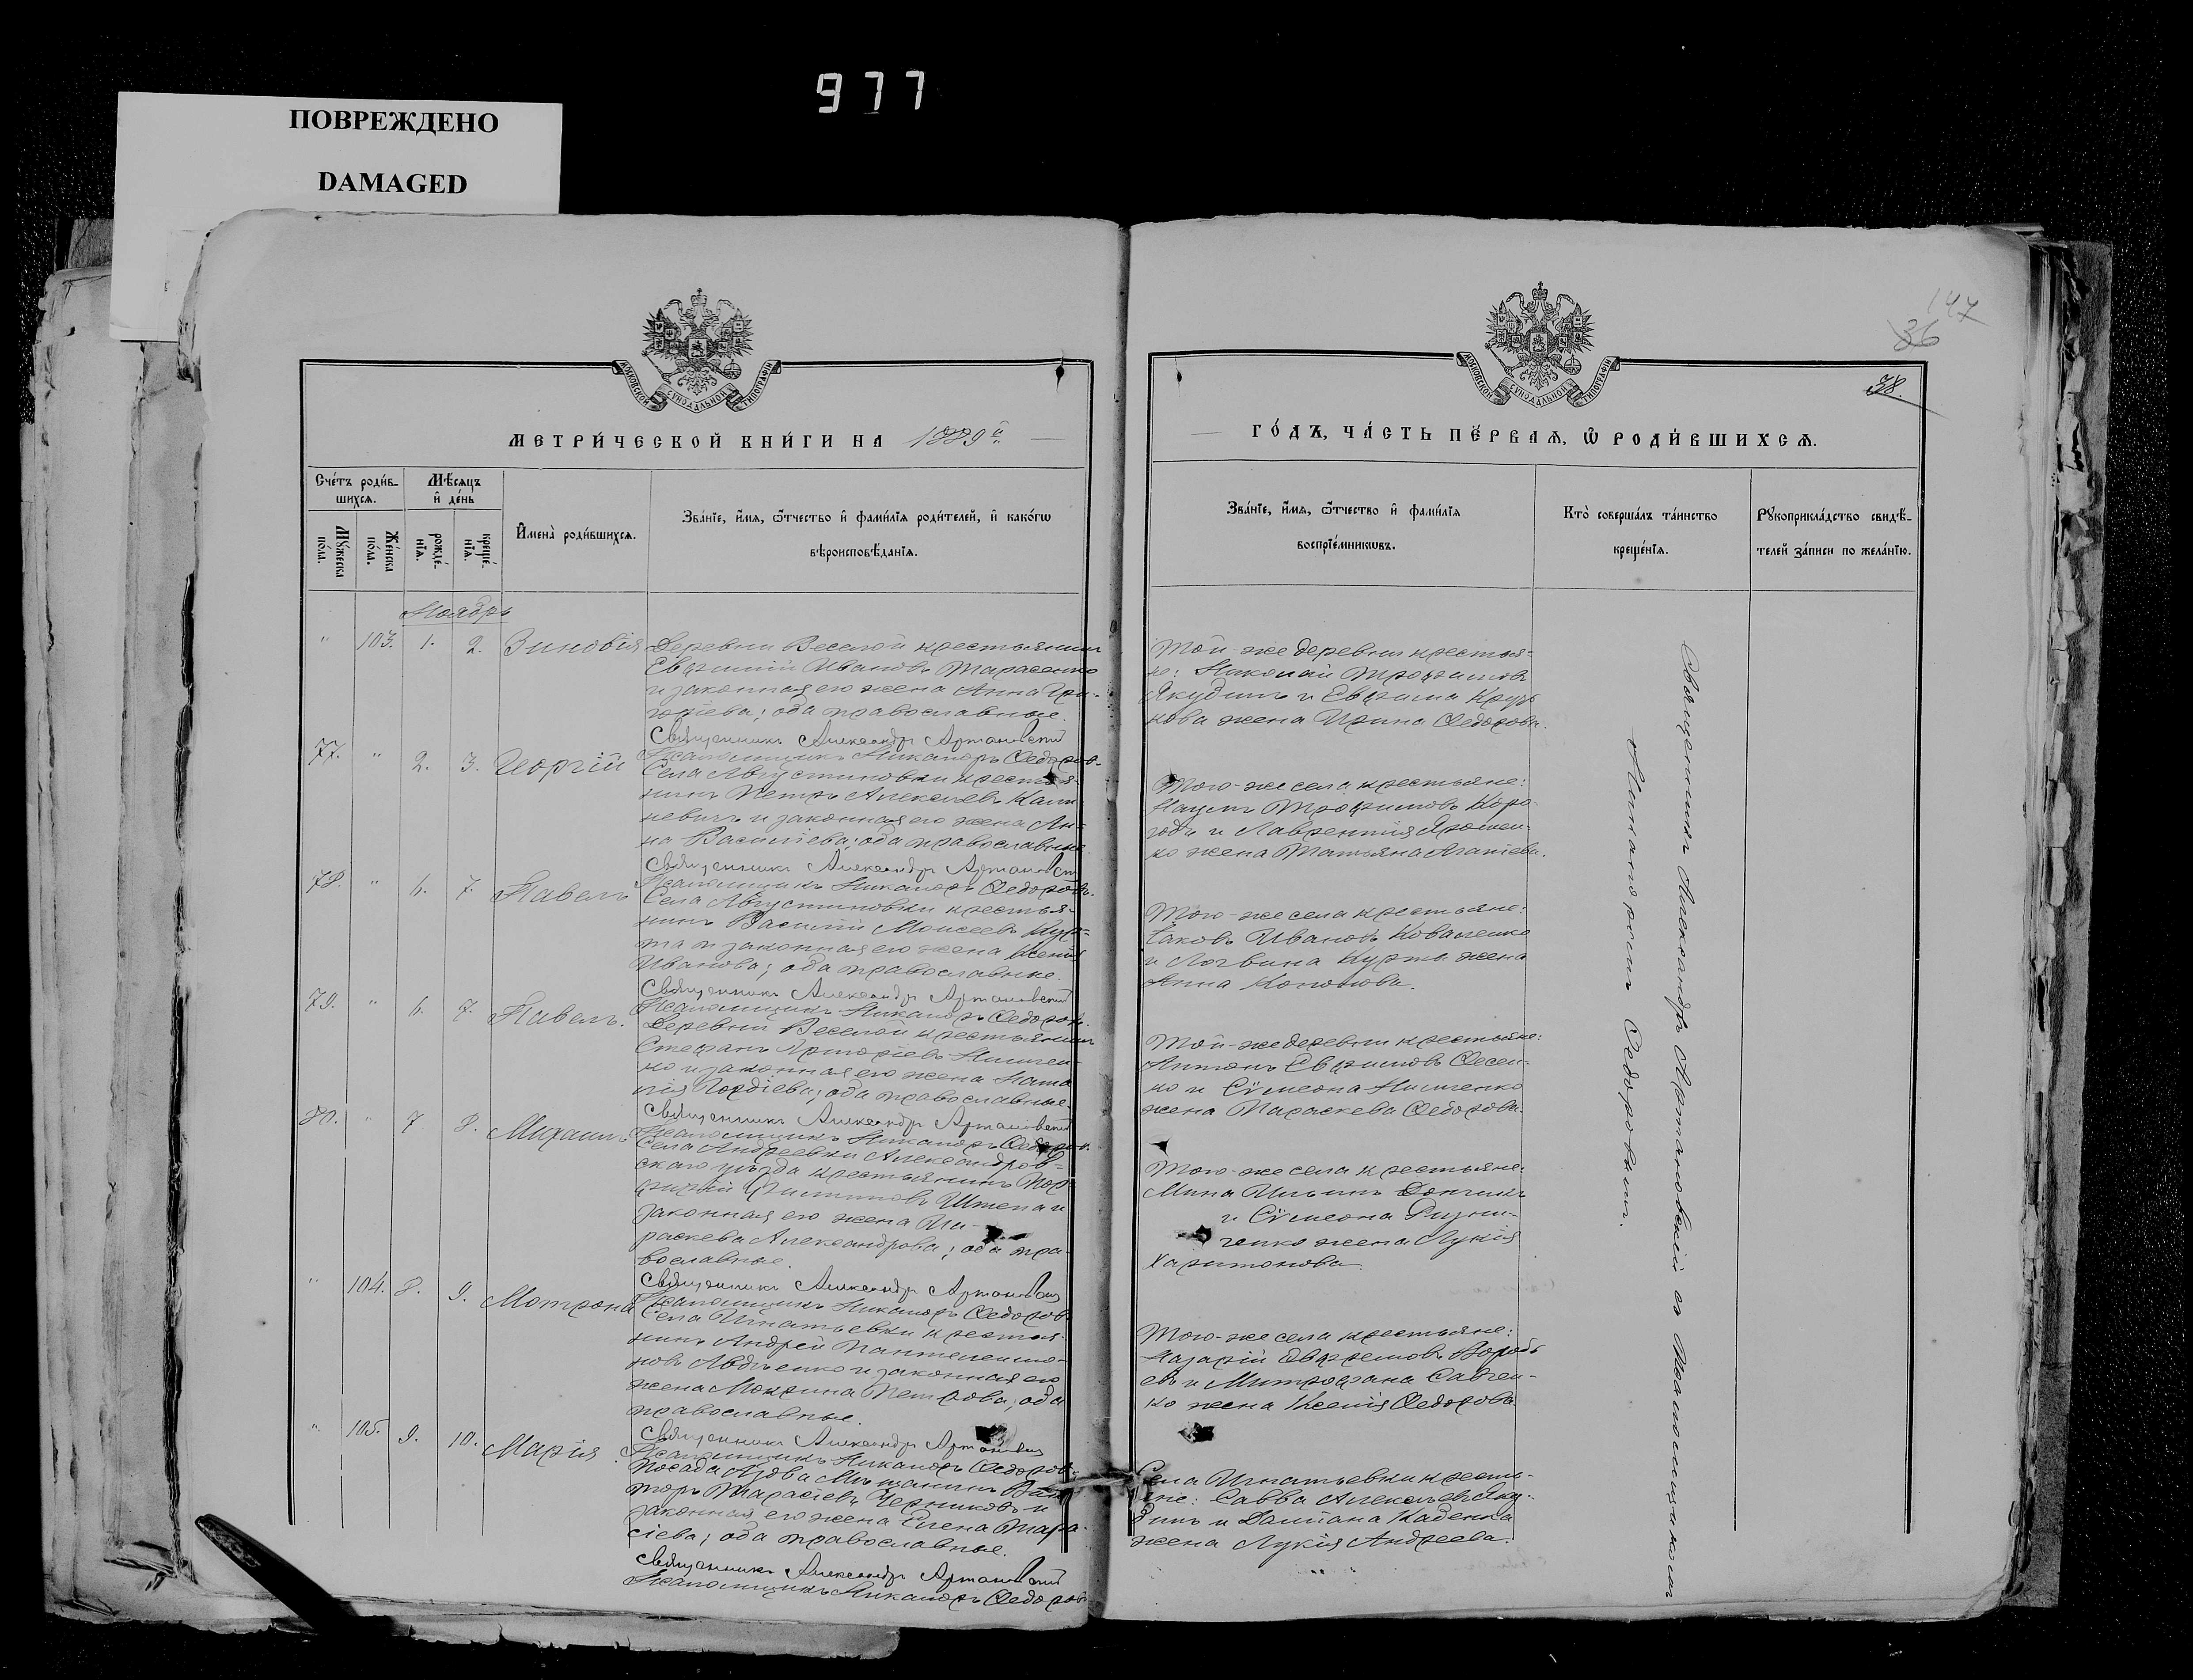 977
ПОВРЕЖДЕНО
DAMAGED
147
36
38.
МОСКОВСКОЙ СѴНОДАЛЬНОЙ ТИПОГРАФІИ
МОСКОВСКОЙ СѴНОДАЛЬНОЙ ТИПОГРАФІИ
МЕТРИ́ЧЕСКОЙ КНИ́ГИ НА 1889й
ГО́ДЪ, ЧА́СТЬ ПЕ́РВАЯ, Ѽ РОДИ́ВШИХСЯ.
Сче́тъ роди́в-
шихся.
Му́жеска по́ла.
Же́нска по́ла.
Мѣ́сяцъ
и҆ де́нь
рожде́-
нїя.
креще́-
нїя.
И҆мена̀ роди́вшихся.
Зва́нїе, и҆́мя, ѻ҆́тчество и҆ фами́лїя роди́телей, и҆ како́гѡ
вѣроисповѣ́данїя.
Зва́нїе, и҆́мя, ѻ҆́тчество и҆ фами́лїя
воспрїе́мникѡвъ.
Кто̀ соверша́лъ та́инство
креще́нїя.
Рꙋкоприкла́дство свидѣ́-
телей за́писи по жела́нїю.
Ноябрь
" 103. 1. 2. Зиновія
Деревни Веселой крестьянинъ
Евфимій Ивановъ Тарасенко
и законная его жена Анна Гри-
горіева; оба православные.
Священникъ Александръ Артановскій
Псаломщикъ Никаноръ Ѳедоровъ.
Той-же деревни крестья-
не: Николай Трофимовъ
Якудинъ и Евфима
жена Ирина Ѳедорова.
77. " 2. 3. Георгій
Села Августиновки крестья-
нинъ Петръ Алексѣевъ
и законная его жена Ан-
на Василіева; оба православные
Священникъ Александръ Артановскій
Псаломщикъ Никаноръ Ѳедоровъ.
Того-же села крестьяне:
Наумъ Трофимовъ
и Лаврентія Ярошен-
ко жена Татьяна
78. " 6. 7. Павелъ
Села Августиновки крестья-
нинъ Василій Моисеевъ Кур-
та и законная его жена Ксенія
Иванова; оба православные.
Священникъ Александръ Артановскій
Псаломщикъ Никаноръ Ѳедоровъ.
Того-же села крестьяне:
Іаковъ Ивановъ Коваленко
и Логвина Курты жена
Анна Кононова.
79. " 6. 7. Павелъ.
Деревни Веселой крестьянинъ
Стефанъ Григоріевъ Нищен-
ко и законная его жена Ната-
лія Гордіева; оба православные.
Священникъ Александръ Артановскій
Псаломщикъ Никаноръ Ѳедоровъ.
Той-же деревни крестьяне:
Антонъ Евфимовъ Ѳесен-
ко и Сѵмеона Нищенко
жена Параскева Ѳедорова.
80. " 7 8. Михаилъ
Села Андреевки Александров-
скаго уѣзда крестьянинъ Пор-
фирій Филипповъ Штепа и
законная его жена Па-
раскева Александрова; оба пра-
вославные.
Священникъ Александръ Артановскій
Псаломщикъ Никаноръ Ѳедоровъ
Того-же села крестьяне:
Мина Ильинъ Дончикъ
и Сѵмеона Ризни-
ченко жена Лукія
Харитонова.
" 104. 8. 9. Мотрона
Села Игнатьевки крестья-
нинъ Андрей Пантелеимо-
новъ Авдѣенко и законная его
жена Мокрина Петрова; оба
православные.
Священникъ Александръ Артановскій
Псаломщикъ Никаноръ Ѳедоровъ.
Того-же села крестьяне:
Назарій Евфремовъ Вороб-
евъ и Митрофана Савчен-
ко жена Ксенія Ѳедорова
" 105. 9. 10. Марія
Посада Азова Мѣщанинъ Вик-
торъ Тарасіевъ Черниковъ и
законная его жена Елена Тара-
сіева; оба православные.
Священникъ Александръ Артановскій
Псаломщикъ Никаноръ Ѳедоровъ
Села Игнатьевки крестья-
не: Савва Алексѣевъ Яку-
динъ и Даміана Каденка
жена Лукія Андреева.
Священникъ Александръ Артановскій со псаломщикомъ
Никаноромъ Ѳедоровымъ.